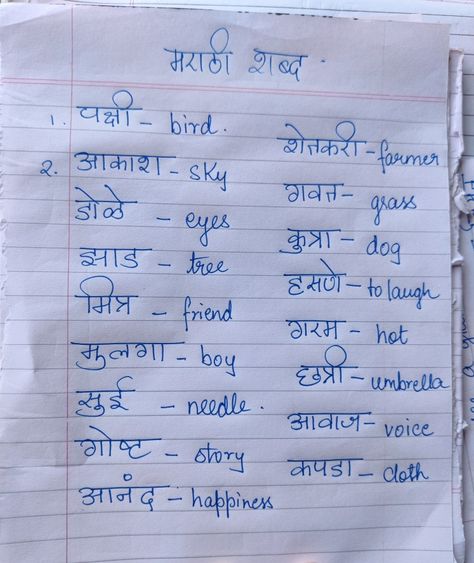 मराठी शब्द .
1. पक्षी – bird.
2. आकाश – sky
डोळे – eyes
झाड – tree
मित्र – friend
मुलगा – boy
सुई – needle.
गोष्ट – story
आनंद – happiness
शेतकरी – farmer
गवत – grass
कुत्रा – dog
हसणे – to laugh
गरम – hot
छत्री – umbrella
आवाज – voice
कपडा – cloth